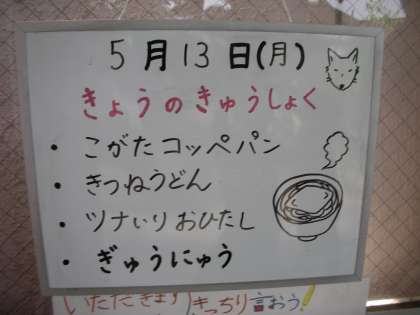 5月13日(月)
きょうのきゅうしょく
・こがたコッペパン
・きつねうどん
・ツナいりおひたし
・ぎゅうにゅう
いただきます きっちり言おう!